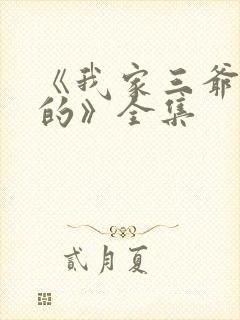 《我家三爷
的》全集
贰月夏